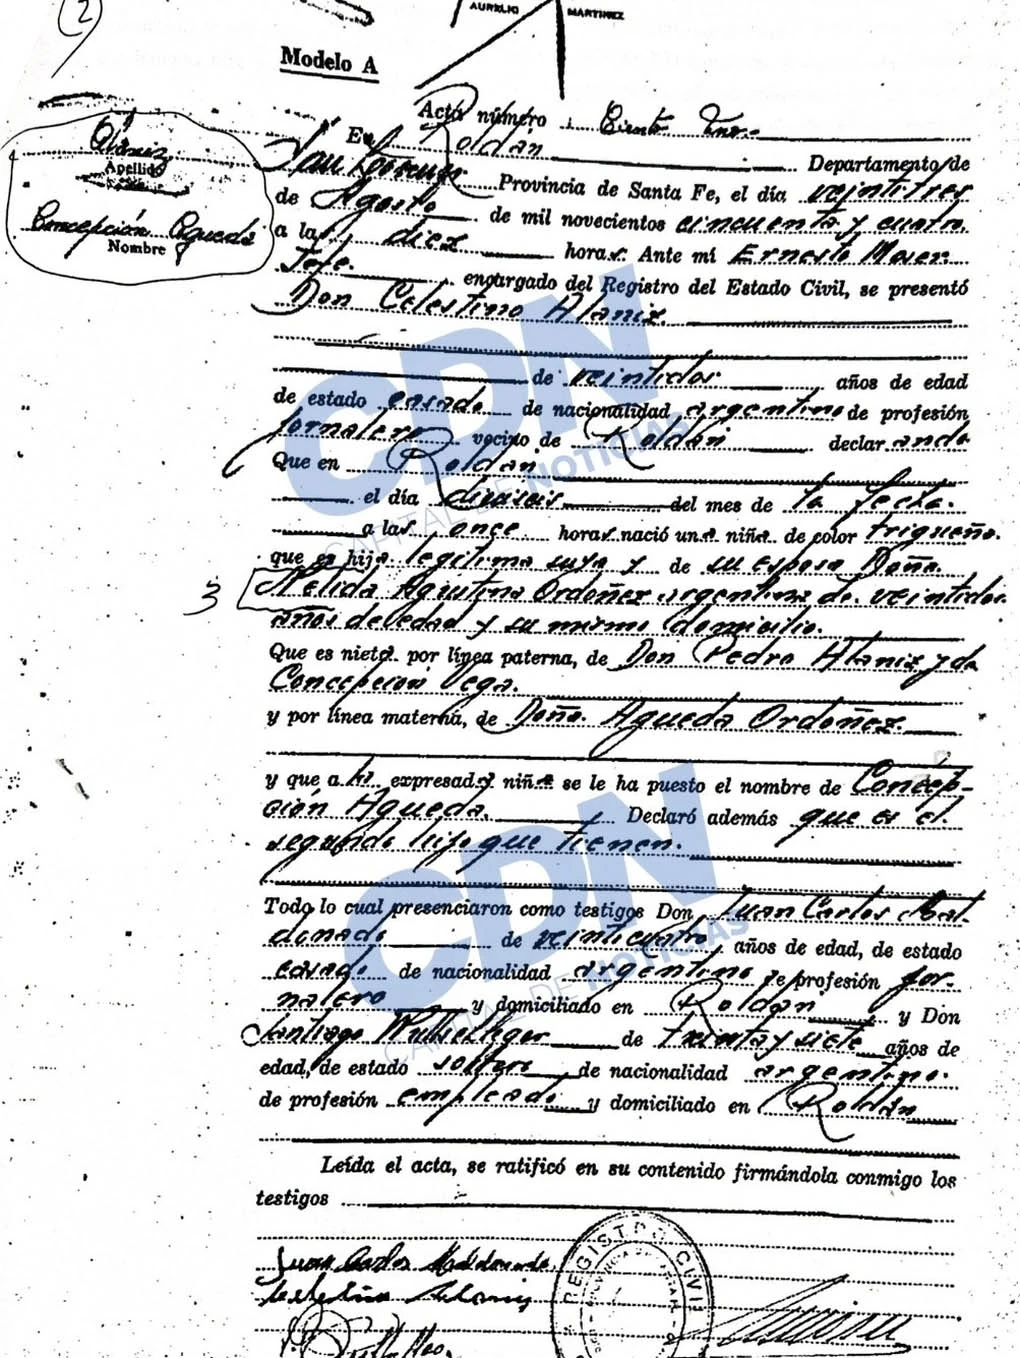 (2)
AURELIO MARTINEZ
Modelo A
Acta número Ciento
En Roldán Departamento de
San Lorenzo Provincia de Santa Fe, el día veintitres
de Agosto de mil novecientos cincuenta y cuatro
a las diez horas. Ante mí Ernesto Moser
Jefe. encargado del Registro del Estado Civil, se presentó
Don Celestino Alaniz.
Apellido
Concepción Agueda
Nombre
de veintidos años de edad
de estado casado de nacionalidad argentino de profesión
jornalero vecino de Roldán declarando
Que en Roldán
el día dieciseis del mes de la fecha.
a las once horas nació una niña de color trigueño.
que es hija legítima suya y de su esposa Doña
3 Nelida Agustina Ordoñez argentina de veintidos
años de edad y su mismo domicilio.
Que es nieta por línea paterna, de Don Pedro Alaniz y de
Concepción Vega.
y por línea materna, de Doña Agueda Ordoñez.
y que a la expresada niña se le ha puesto el nombre de Concep-
ción Agueda. Declaró además que es el
segundo hijo que tienen.
Todo lo cual presenciaron como testigos Don Juan Carlos Mal-
donado de veinticuatro años de edad, de estado
casado de nacionalidad argentino de profesión jor-
nalero y domiciliado en Roldán y Don
Santiago de treinta y siete años de
edad, de estado soltero de nacionalidad argentino.
de profesión empleado y domiciliado en Roldán
Leída el acta, se ratificó en su contenido firmándola conmigo los
testigos
Juan Carlos Maldonado
Celestino Alaniz
REGISTRO CIVIL
CDN
CAPITAL DE NOTICIAS
CDN
CAPITAL DE NOTICIAS